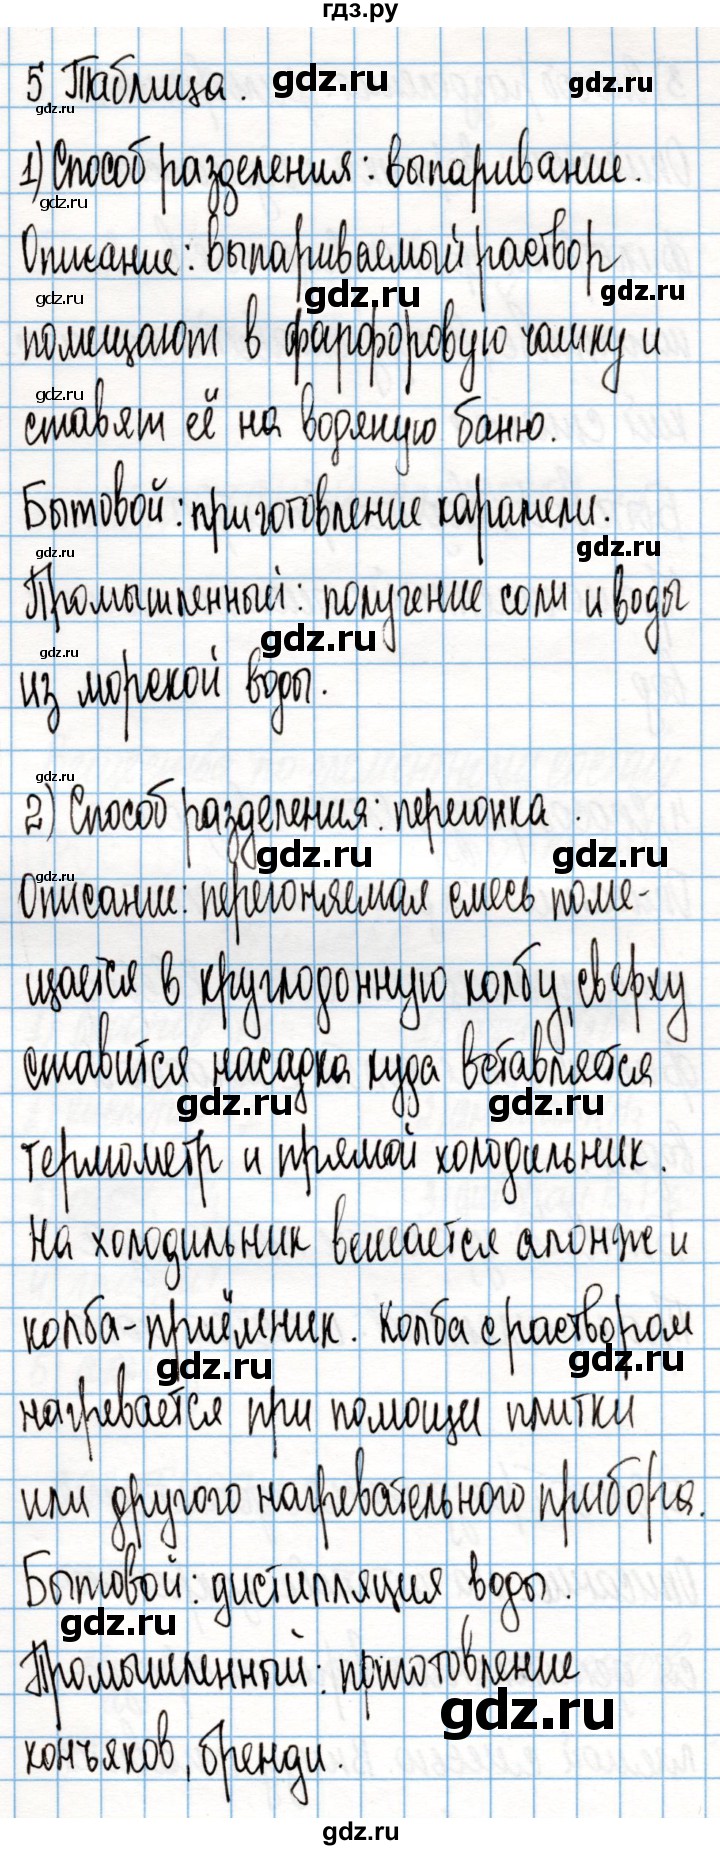 гдз.ру
5 Таблица.
gdz.ru
gdz.ru
gdz.ru
1) Способ разделения: выпаривание.
gdz.ru
Описание: выпариваемый раствор
gdz.ru
gdz.ru
gdz.ru
помещают в фарфоровую чашку и
gdz.ru
ставят её на водяную баню.
Бытовой: приготовление карамели.
gdz.ru
gdz.ru
Промышленный: получение соли и воды
gdz.ru
gdz.ru
из морской воды.
gdz.ru
2) Способ разделения: перегонка.
gdz.ru
gdz.ru
gdz.ru
Описание: перегоняемая смесь поме-
щается в круглодонную колбу, сверху
ставится насадка куда вставляется
gdz.ru
gdz.ru
термометр и прямой холодильник.
На холодильник вешается алонж и
колба-приёмник. Колба с раствором
gdz.ru
gdz.ru
нагревается при помощи плитки
или другого нагревательного прибора.
Бытовой: дистилляция воды.
gdz.ru
Промышленный: приготовление
gdz.ru
коньяков, бренди.
gdz.ru